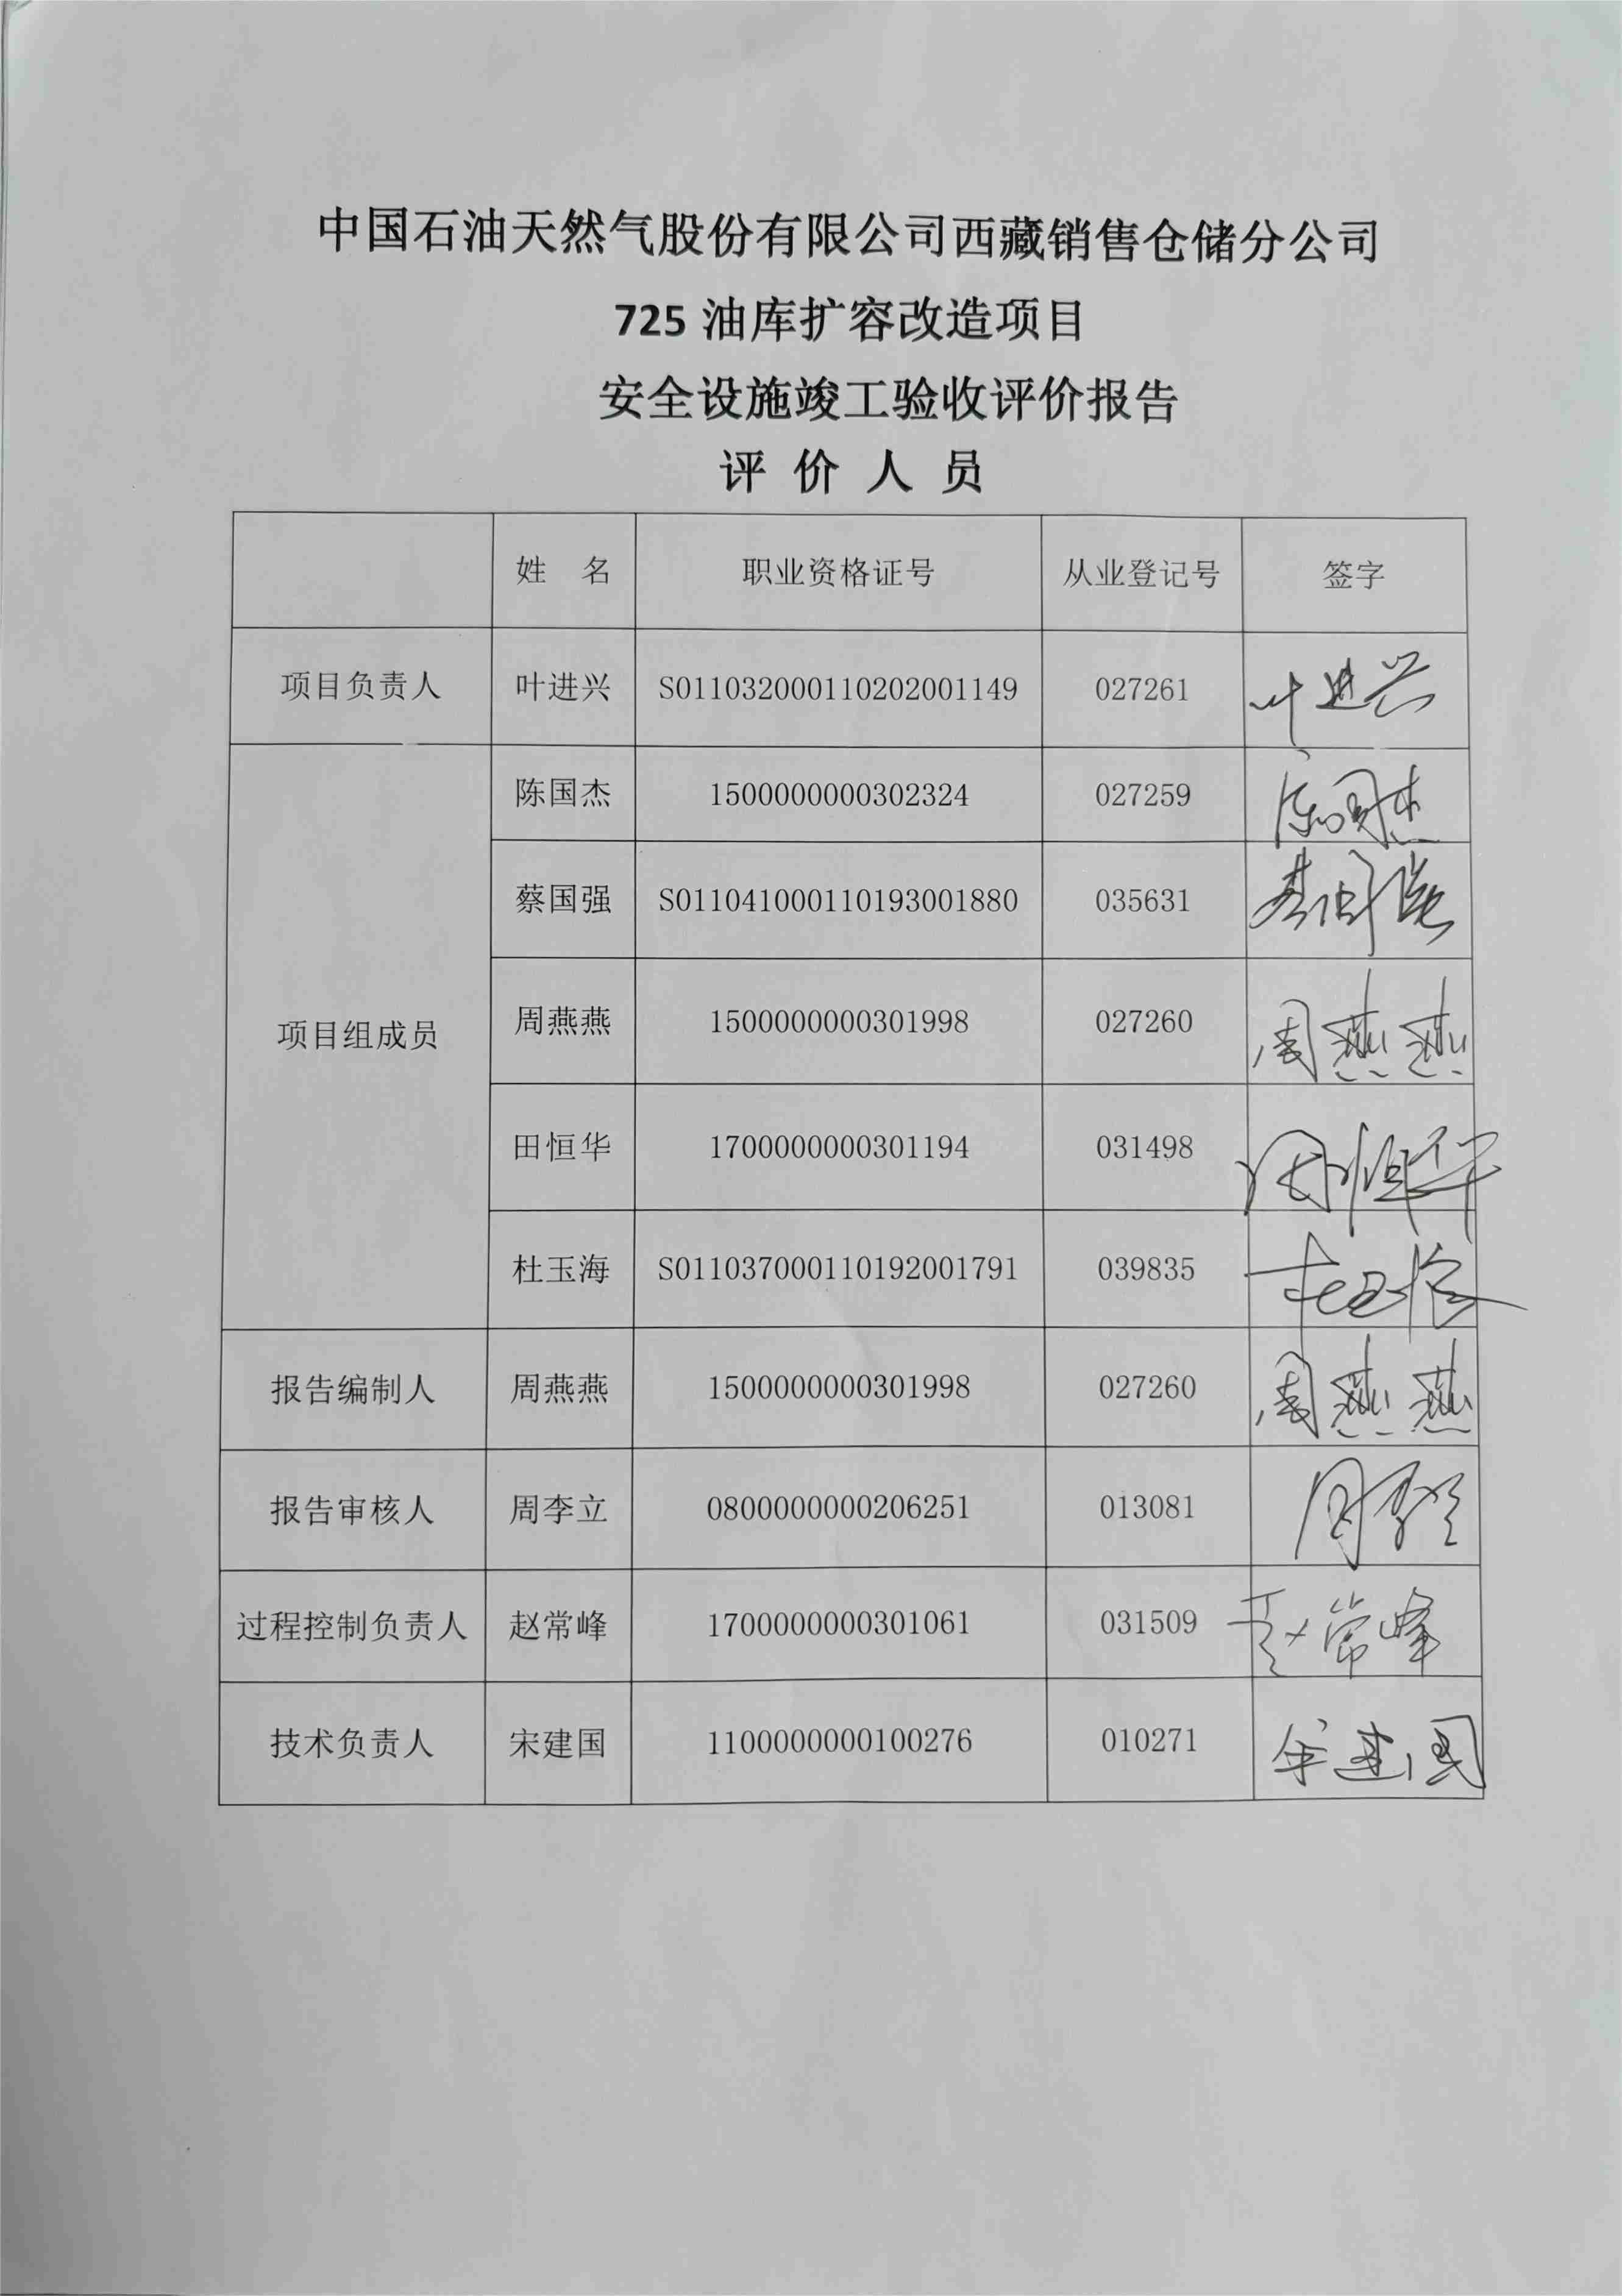 中国石油天然气股份有限公司西藏销售仓储分公司
725 油库扩容改造项目
安全设施竣工验收评价报告
评 价 人 员
姓 名 职业资格证号 从业登记号 签字
项目负责人 叶进兴 S011032000110202001149 027261 叶进兴
陈国杰 1500000000302324 027259 陈国杰
蔡国强 S011041000110193001880 035631 蔡国强
项目组成员 周燕燕 1500000000301998 027260 周燕燕
田恒华 1700000000301194 031498 田恒华
杜玉海 S011037000110192001791 039835 杜玉海
报告编制人 周燕燕 1500000000301998 027260 周燕燕
报告审核人 周李立 0800000000206251 013081 周李立
过程控制负责人 赵常峰 1700000000301061 031509 赵常峰
技术负责人 宋建国 1100000000100276 010271 宋建国